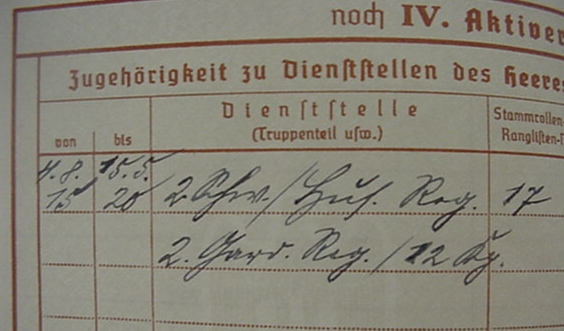 noch IV. Aktiver
Zugehörigkeit zu Dienststellen des Heeres
Dienststelle
(Truppenteil usw.)
Stammrollen-
Ranglisten-
von bis
4.8. 15.5.
15 20 2. Schw./Hus. Reg. 17
2. Gard. Reg./12 Kp.